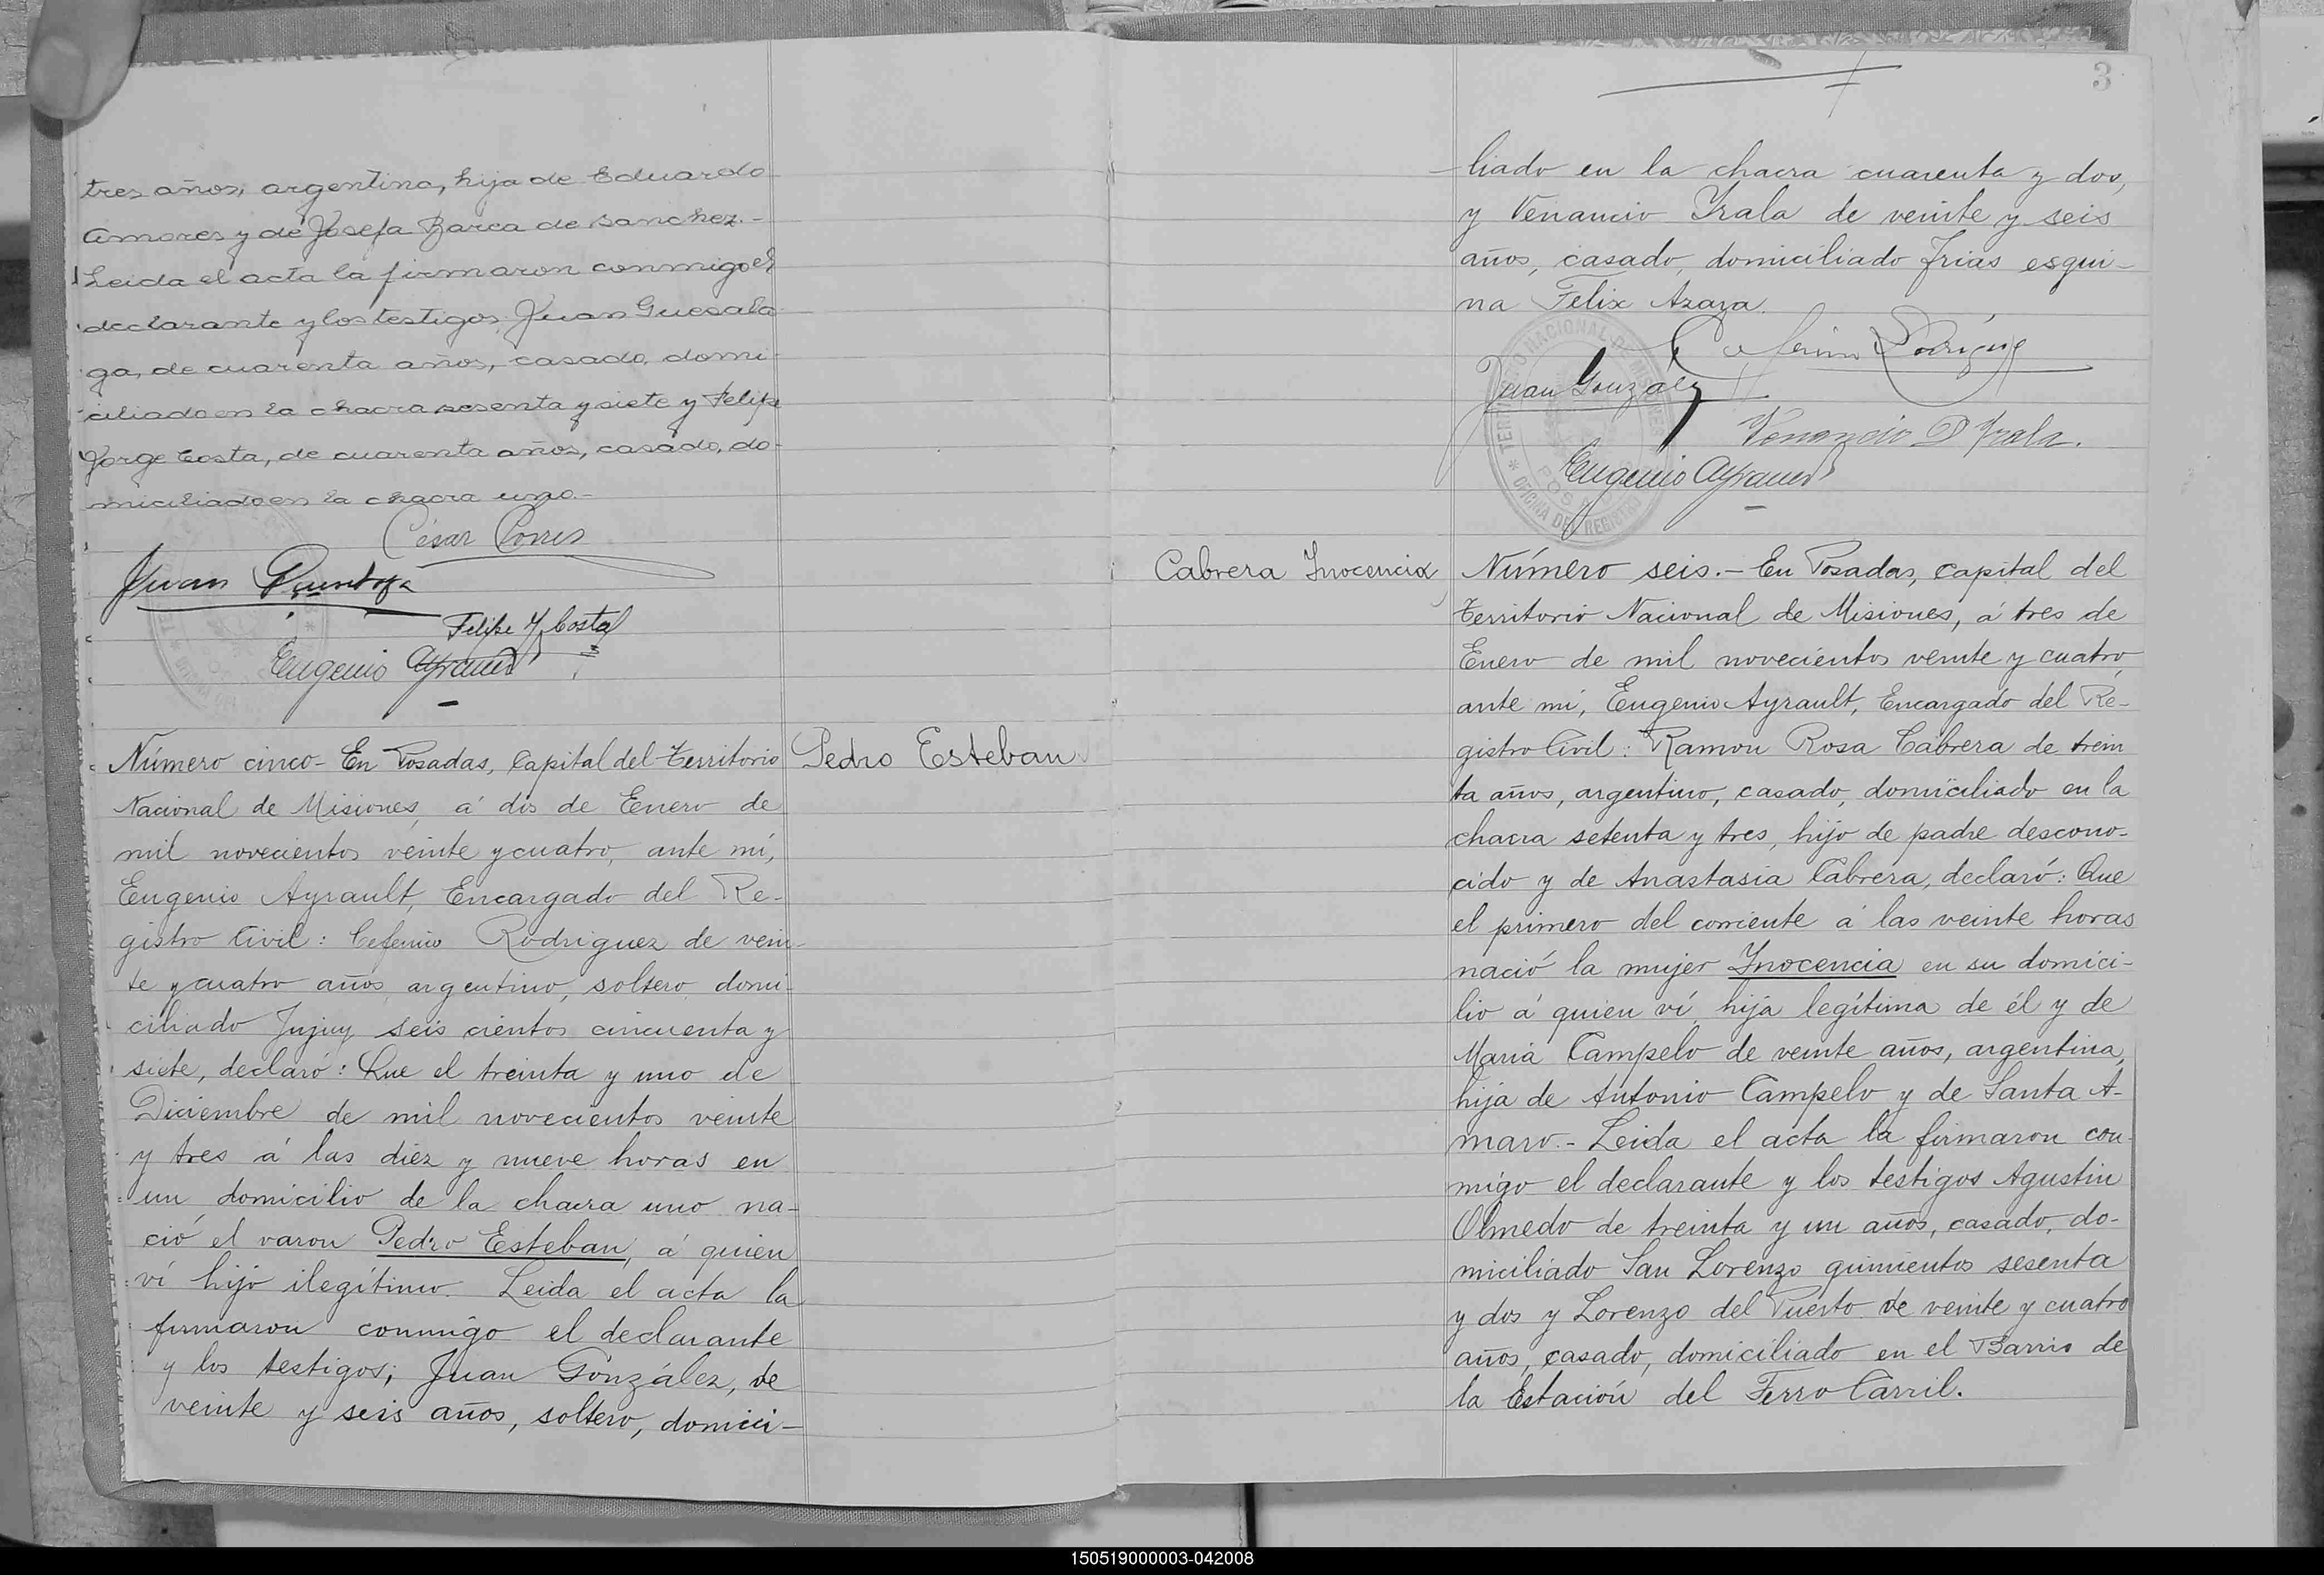 tres años, argentina, hija de Eduardo
Amores y de Josefa Barca de Sanchez.-
Leida el acta la firmaron conmigo el
declarante y los testigos Juan Guesala
ga, de cuarenta años, casado, domi-
ciliado en la chacra sesenta y siete y Felipe
Jorge Costa, de cuarenta años, casado, do-
miciliado en la chacra uno.-
César
Juan
Felipe J. Costa
Eugenio Ayrault
Número cinco- En Posadas, Capital del Territorio
Pedro Esteban
Nacional de Misiones, á dos de Enero de
mil novecientos veinte y cuatro, ante mí,
Eugenio Ayrault, Encargado del Re-
gistro Civil: Ceferino Rodriguez de vein-
te y cuatro años, argentino, soltero, domi-
ciliado Jujuy seis cientos cincuenta y
siete, declaró: Que el treinta y uno de
Diciembre de mil novecientos veinte
y tres á las diez y nueve horas en
un domicilio de la chacra uno na-
ció el varon Pedro Esteban, á quien
ví hijo ilegítimo. Leida el acta la
firmaron conmigo el declarante
y los testigos; Juan González, de
veinte y seis años, soltero, domici-
3
-liado en la chacra cuarenta y dos,
y Venancio Irala de veinte y seis
años, casado, domiciliado Frias esqui-
na Felix Azara.
Ceferino Rodríguez
Juan González
Venancio D Irala.
Eugenio Ayrault
TERRITORIO NACIONAL DE MISIONES
OFICINA DEL REGISTRO
Cabrera Inocencia
Número seis.- En Posadas, capital del
Territorio Nacional de Misiones, á tres de
Enero de mil novecientos veinte y cuatro,
ante mí, Eugenio Ayrault, Encargado del Re-
gistro Civil: Ramon Rosa Cabrera de trein
ta años, argentino, casado, domiciliado en la
chacra setenta y tres, hijo de padre descono-
cido y de Anastasia Cabrera, declaró: Que
el primero del corriente á las veinte horas
nació la mujer Inocencia en su domici-
lio á quien ví, hija legítima de él y de
María Campelo de veinte años, argentina,
hija de Antonio Campelo y de Santa A-
maro.- Leida el acta la firmaron con-
migo el declarante y los testigos Agustin
Olmedo de treinta y un años, casado, do-
miciliado San Lorenzo quinientos sesenta
y dos y Lorenzo del Puerto de veinte y cuatro
años, casado, domiciliado en el Barrio de
la Estación del Ferro Carril.
150519000003-042008